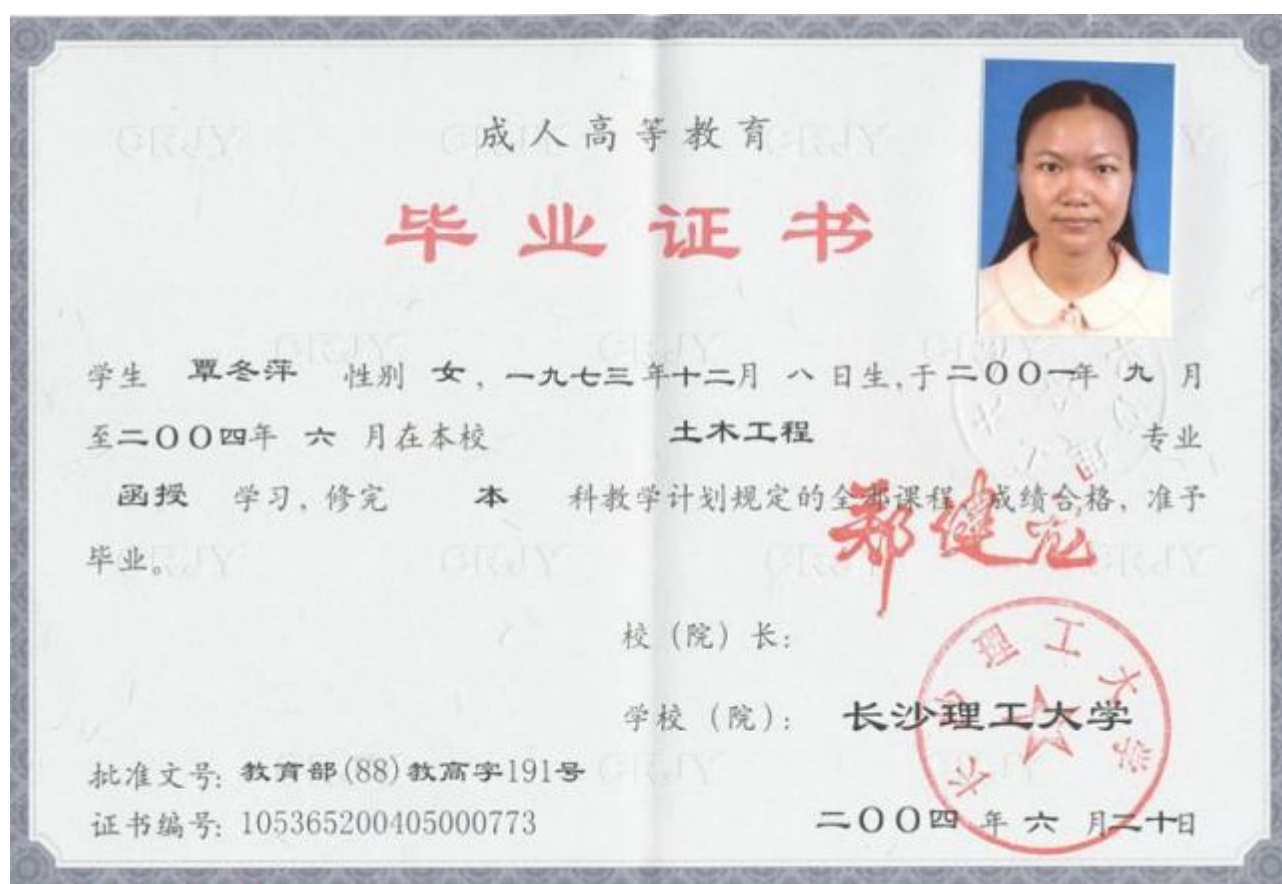 成人高等教育
毕业证书
学生 覃冬萍 性别 女，一九七三年十二月 八 日生，于二〇〇一年 九 月
至二〇〇四年 六 月在本校 土木工程 专业
函授 学习，修完 本 科教学计划规定的全部课程，成绩合格，准予
毕业。
郑健龙
校（院）长：
学校（院）： 长沙理工大学
长沙理工大学
批准文号：教育部(88)教高字191号
证书编号：105365200405000773
二〇〇四 年 六 月二十日